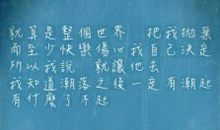 就算是整個世界 把我拋棄
而至少快樂傷心我自己決定
所以我說 就讓他去
我知道潮落之後一定有潮起
有什麼了不起